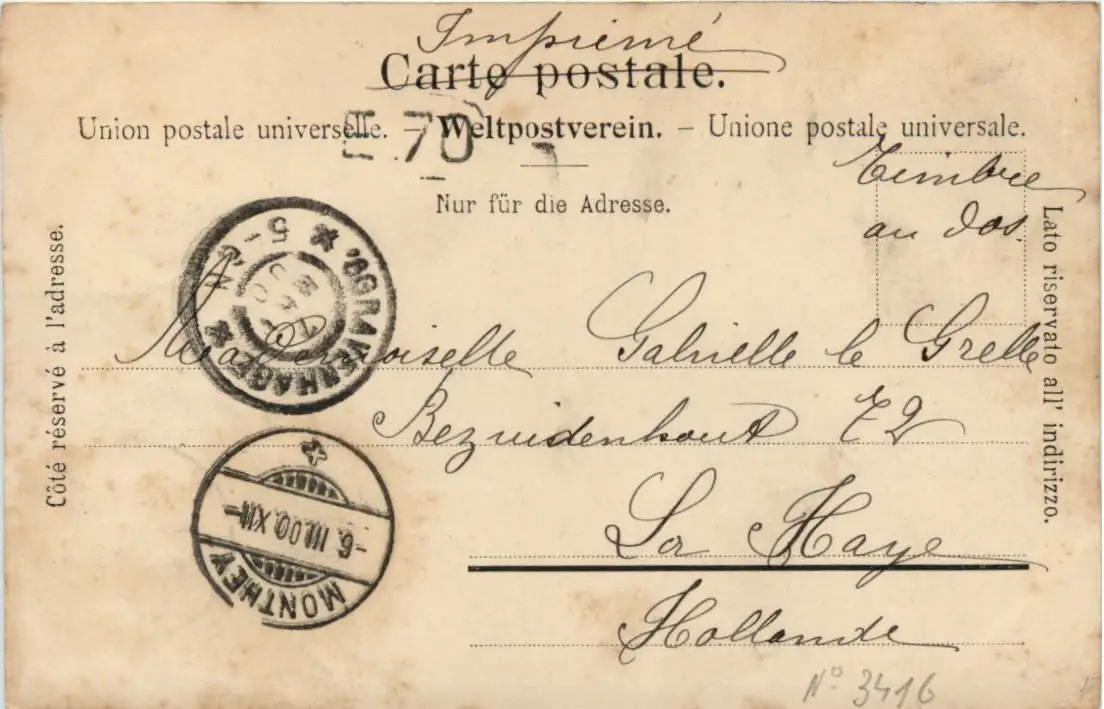 Imprimé
Carte postale.
Union postale universelle. – Weltpostverein. – Unione postale universale.
70
Nur für die Adresse.
Timbre
au dos.
Côté réservé à l'adresse.
Lato riservato all' indirizzo.
'SGRAVENHAGE
5-6 N
Mademoiselle Gabrielle le Grelle
Bezuidenhout 72
La Haye
Hollande
MONTHEY
-6.III.00.XII-
No 3416